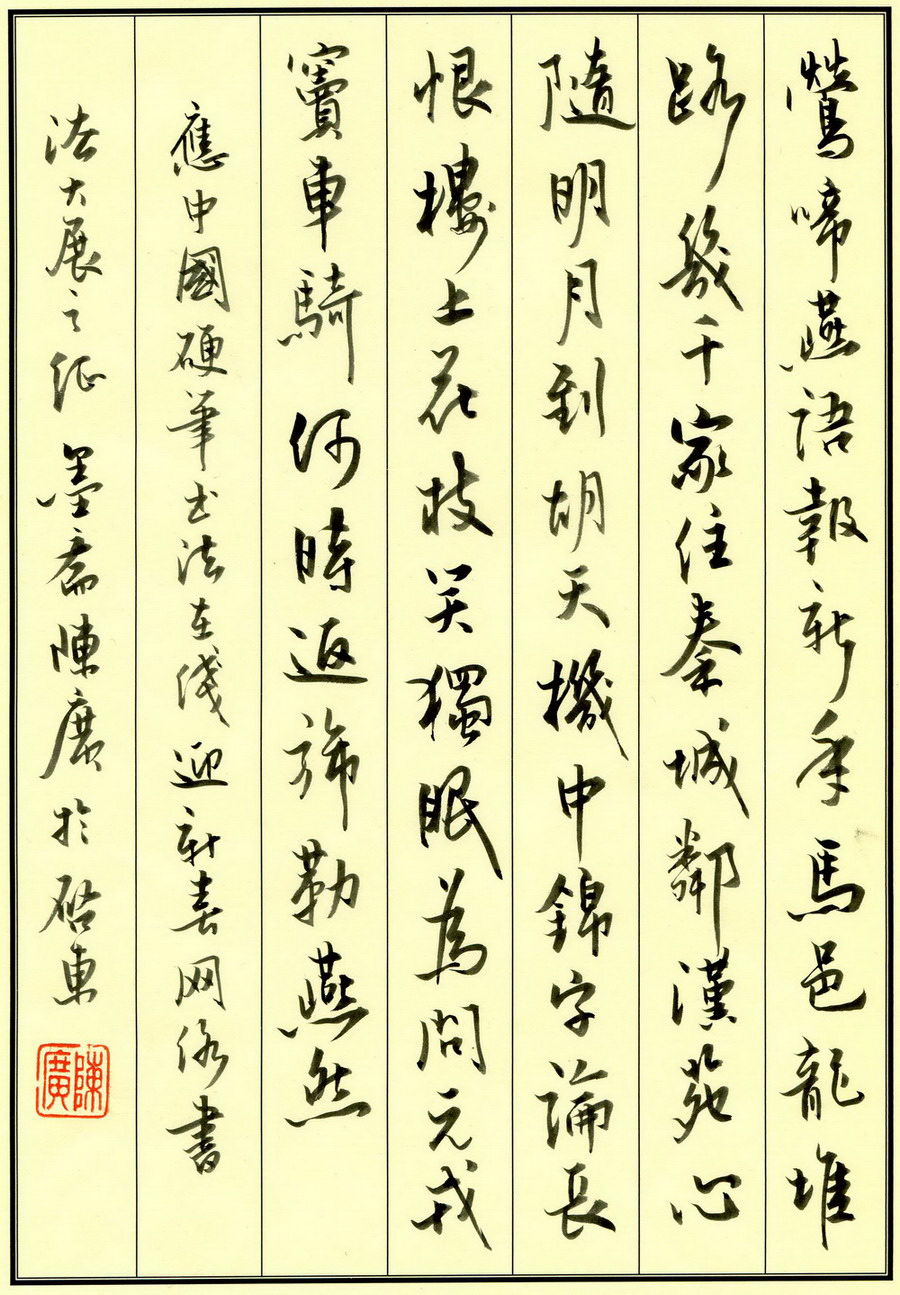 鶯啼燕語報新年馬邑龍堆
路幾千家住秦城鄰漢苑心
隨明月到胡天機中錦字論長
恨樓上花枝笑獨眠為問元戎
竇車騎何時返旆勒燕然
應中國硬筆书法在綫迎新春网络書
法大展之征 墨齋陳廣於启東
陳廣